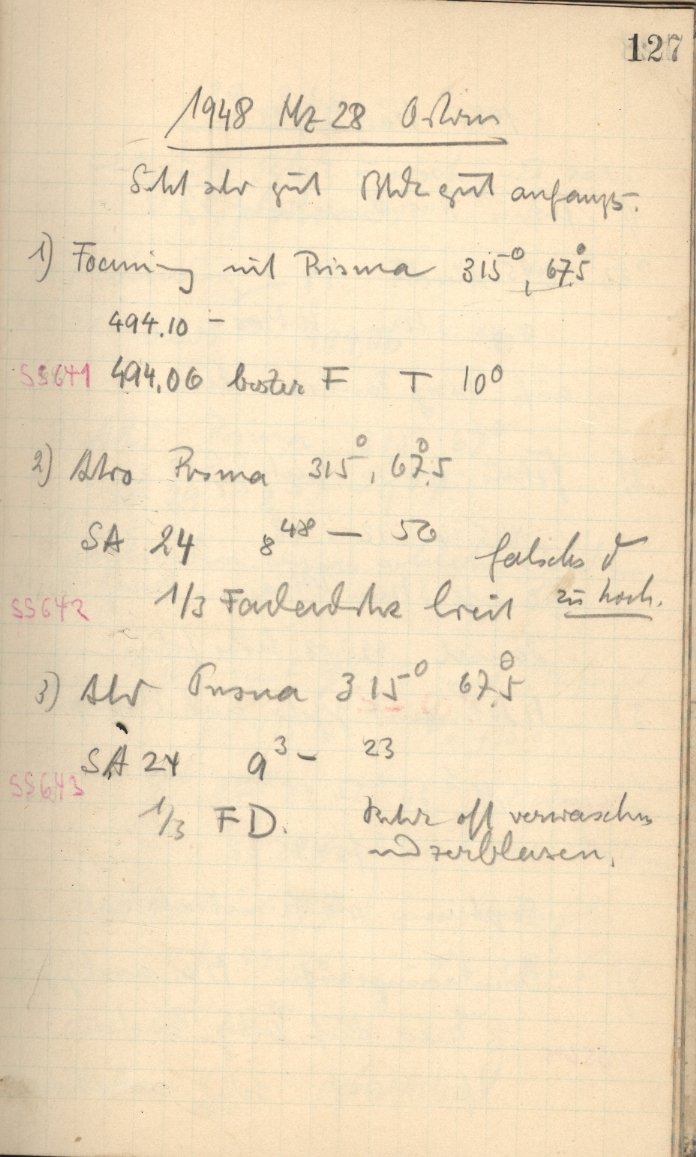 127
1948 Mz 28 Ostern
gut gut anfangs.
1) Focusing mit Prisma 315°, 67.5°
494.10 –
SS641 494.06 bester F T 10°
2) Prisma 315°, 67.5°
SA 24 8 48 – 50 falsch δ
SS642 1/3 breit zu hoch.
3) Prisma 315° 67.5°
SA 24 9 3 – 23
SS643
1/3 FD. oft verwaschen
und zerblasen.